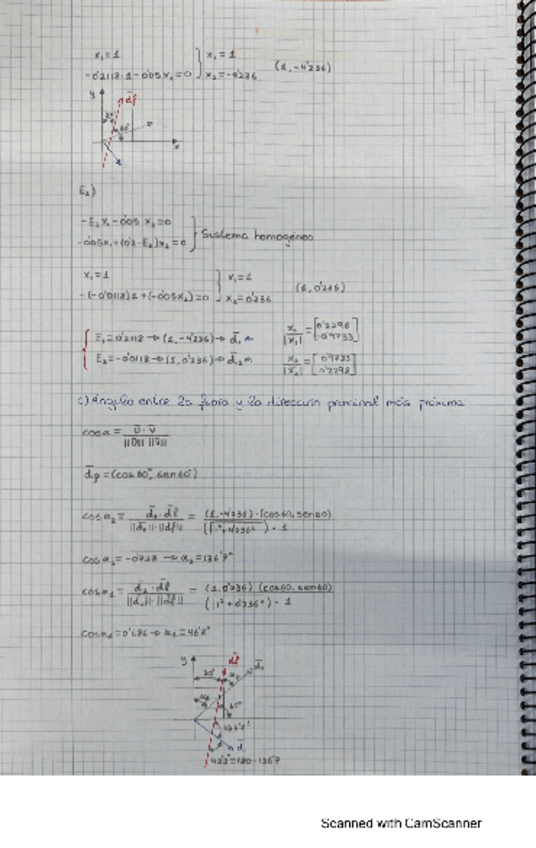 x₁=1 } x₁=1
-0'2118·1-0'05x₂=0 } x₂=-4'236 (1,-4'236)
y d̄f
x
E₂)
-E₂x₁-0'05x₂=0
-0'05x₁+(0'2-E₂)x₂=0 } Sistema homogéneo
x₁=1 } x₁=1
-(-0'0118)1+(-0'05x₂)=0 } x₂=0'236 (1,0'236)
E₁=0'2118 → (1,-4'236) → d̄₁ m x₁/|x₁| = [0'2298 -0'9733]
E₂=-0'0118 → (1,0'236) → d̄₂ m x₂/|x₂| = [0'9733 0'2298]
c) Ángulo entre la fibra y la dirección principal más próxima
cosα = ū·v̄ / ||ū||·||v̄||
d̄f=(cos60°, sen60°)
cosα₂ = d̄₁·d̄f / ||d̄₁||·||df|| = (1,-4'236)·(cos60,sen60) / (√1²+4'236²)·1
cosα₂=-0'728 → α₂=136'7°
cosα₁ = d̄₂·d̄f / ||d̄₂||·||df|| = (1,0'236)·(cos60,sen60) / (√1²+0'236²)·1
cosα₁=0'686 → α₁=46'8°
y d̄f
30° α₁
60°
d̄₁
43'3°=180-136'7
Scanned with CamScanner